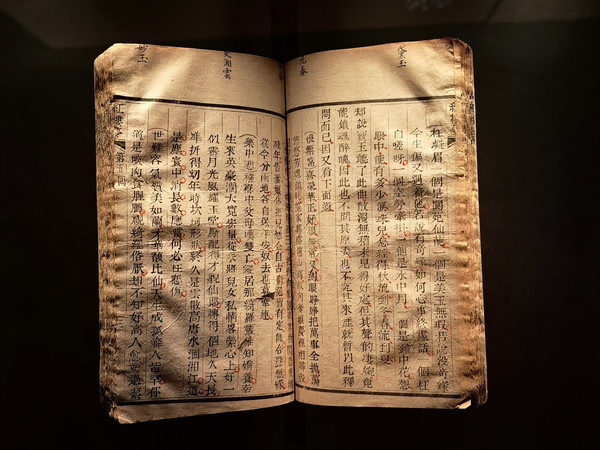 黛玉
元春
紅樓夢
枉凝眉一個是閬苑仙葩一個是美玉無瑕若說沒奇緣
今生偏又遇着他若說有奇緣如何心事終虛話一個枉
自嗟呀一個空勞牽掛一個是水中月一個是鏡中花想
眼中能有多少淚珠兒怎禁得秋流到冬春流到夏
却說寶玉聽了此曲散漫無稽未見得好處但其聲韻凄婉竟
能銷魂醉魄因此也不問其原委也不究其來歷就暫以此釋
悶而已因又看下面道
恨無常喜榮華正好恨無常又到眼睜睜把萬事全拋蕩
史湘雲
妙玉
從今分兩地各自保平安奴去也莫牽連
樂中悲襁褓中父母嘆雙亡縱居那綺羅叢誰知嬌養幸
生來英豪濶大寬宏量從未將兒女私情畧縈心上好一
似霽月光風耀玉堂厮配得才貌仙郎博得個地久天長
準折得幼年時坎坷形狀終久是雲散高唐水涸湘江這
是塵寰中消長數應當何必枉悲傷
世難容氣質美如蘭才華馥比仙天生成孤癖人皆罕你
道是啖肉食腥羶視綺羅俗厭却不知好高人愈妒過潔
紅樓夢 第五回